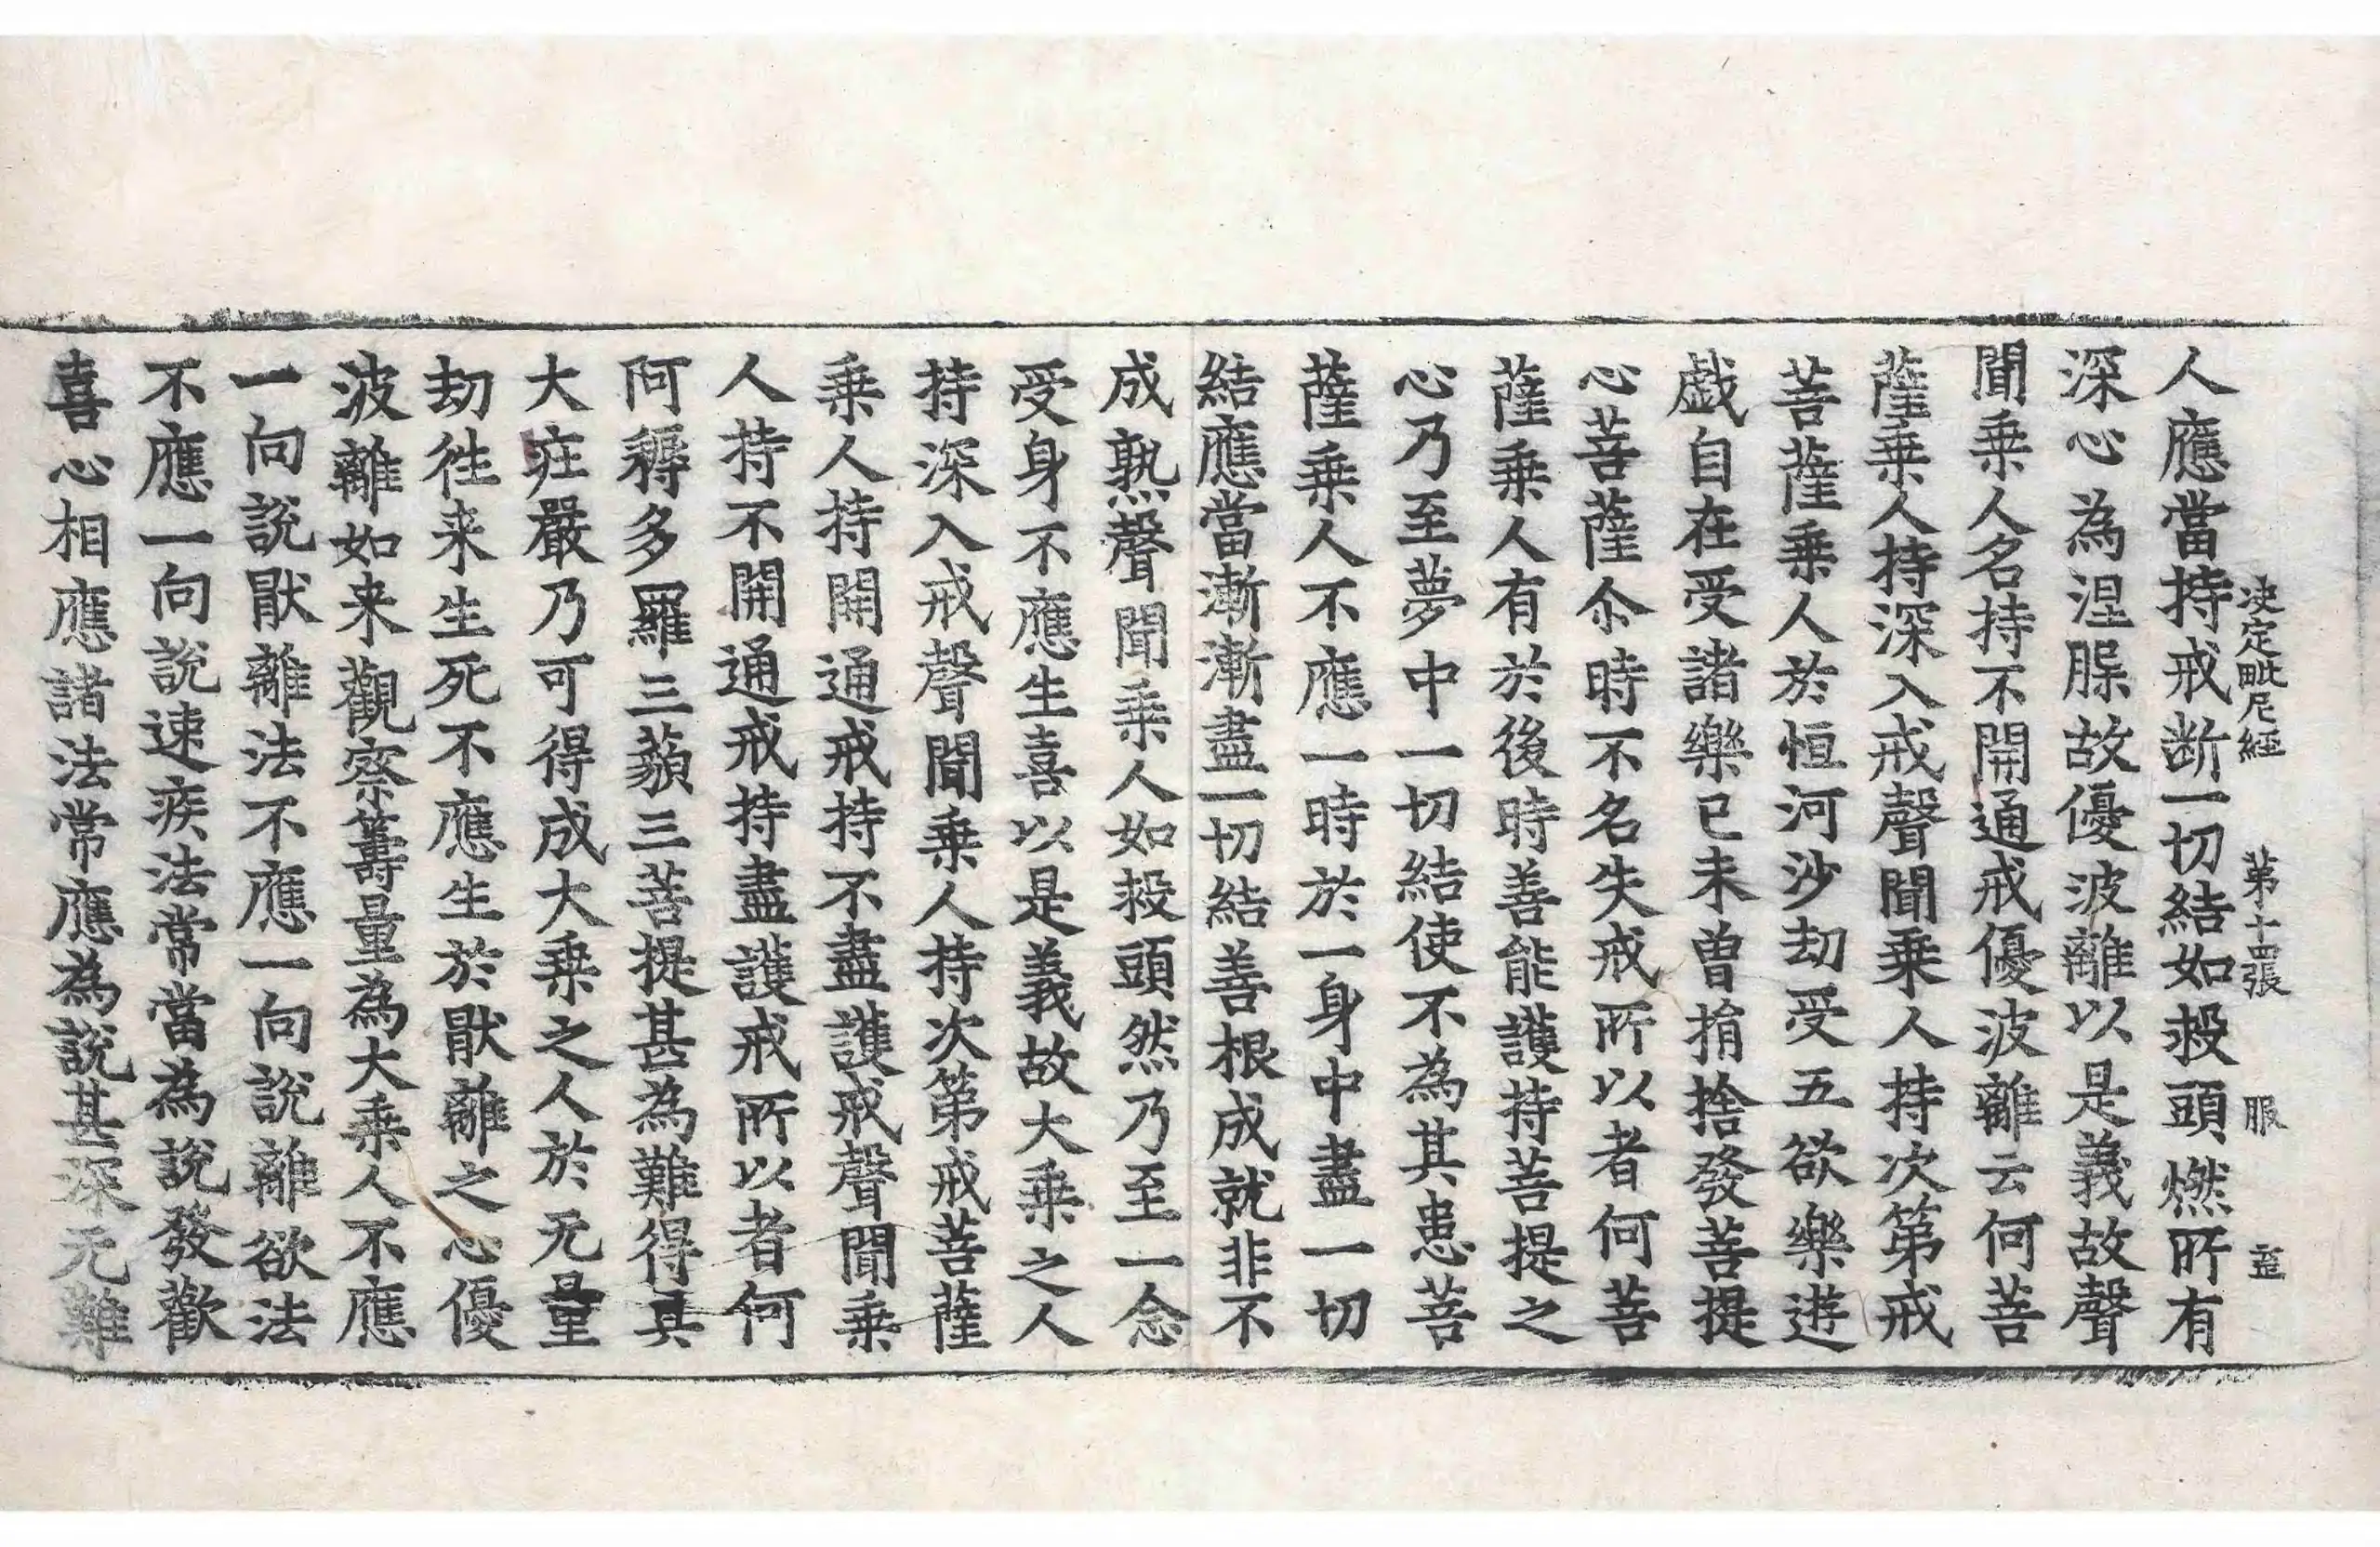 決定毗尼經 第十四張 服
人應當持戒断一切結如救頭燃所有
深心為涅䏶故優波離以是義故聲
聞乗人名持不開通戒優波離云何菩
薩乗人持深入戒聲聞乗人持次第戒
菩薩乗人於恒河沙劫受五欲樂遊
戯自在受諸樂已未曽捐捨發菩提
心菩薩尒時不名失戒所以者何菩
薩乗人有於後時善能護持菩提之
心乃至夢中一切結使不為其患菩
薩乗人不應一時於一身中盡一切
結應當漸漸盡一切結善根成就非不
成熟聲聞乗人如救頭然乃至一念
受身不應生喜以是義故大乗之人
持深入戒聲聞乗人持次第戒菩薩
乗人持開通戒持不盡護戒聲聞乗
人持不開通戒持盡護戒所以者何
阿耨多羅三藐三菩提甚為難得具
大莊嚴乃可得成大乗之人於无量
劫徃来生死不應生於猒離之心優
波離如来觀察籌量為大乗人不應
一向說猒離法不應一向說離欲法
不應一向說速疾法常當為說發歡
喜心相應諸法常應為說甚深无難